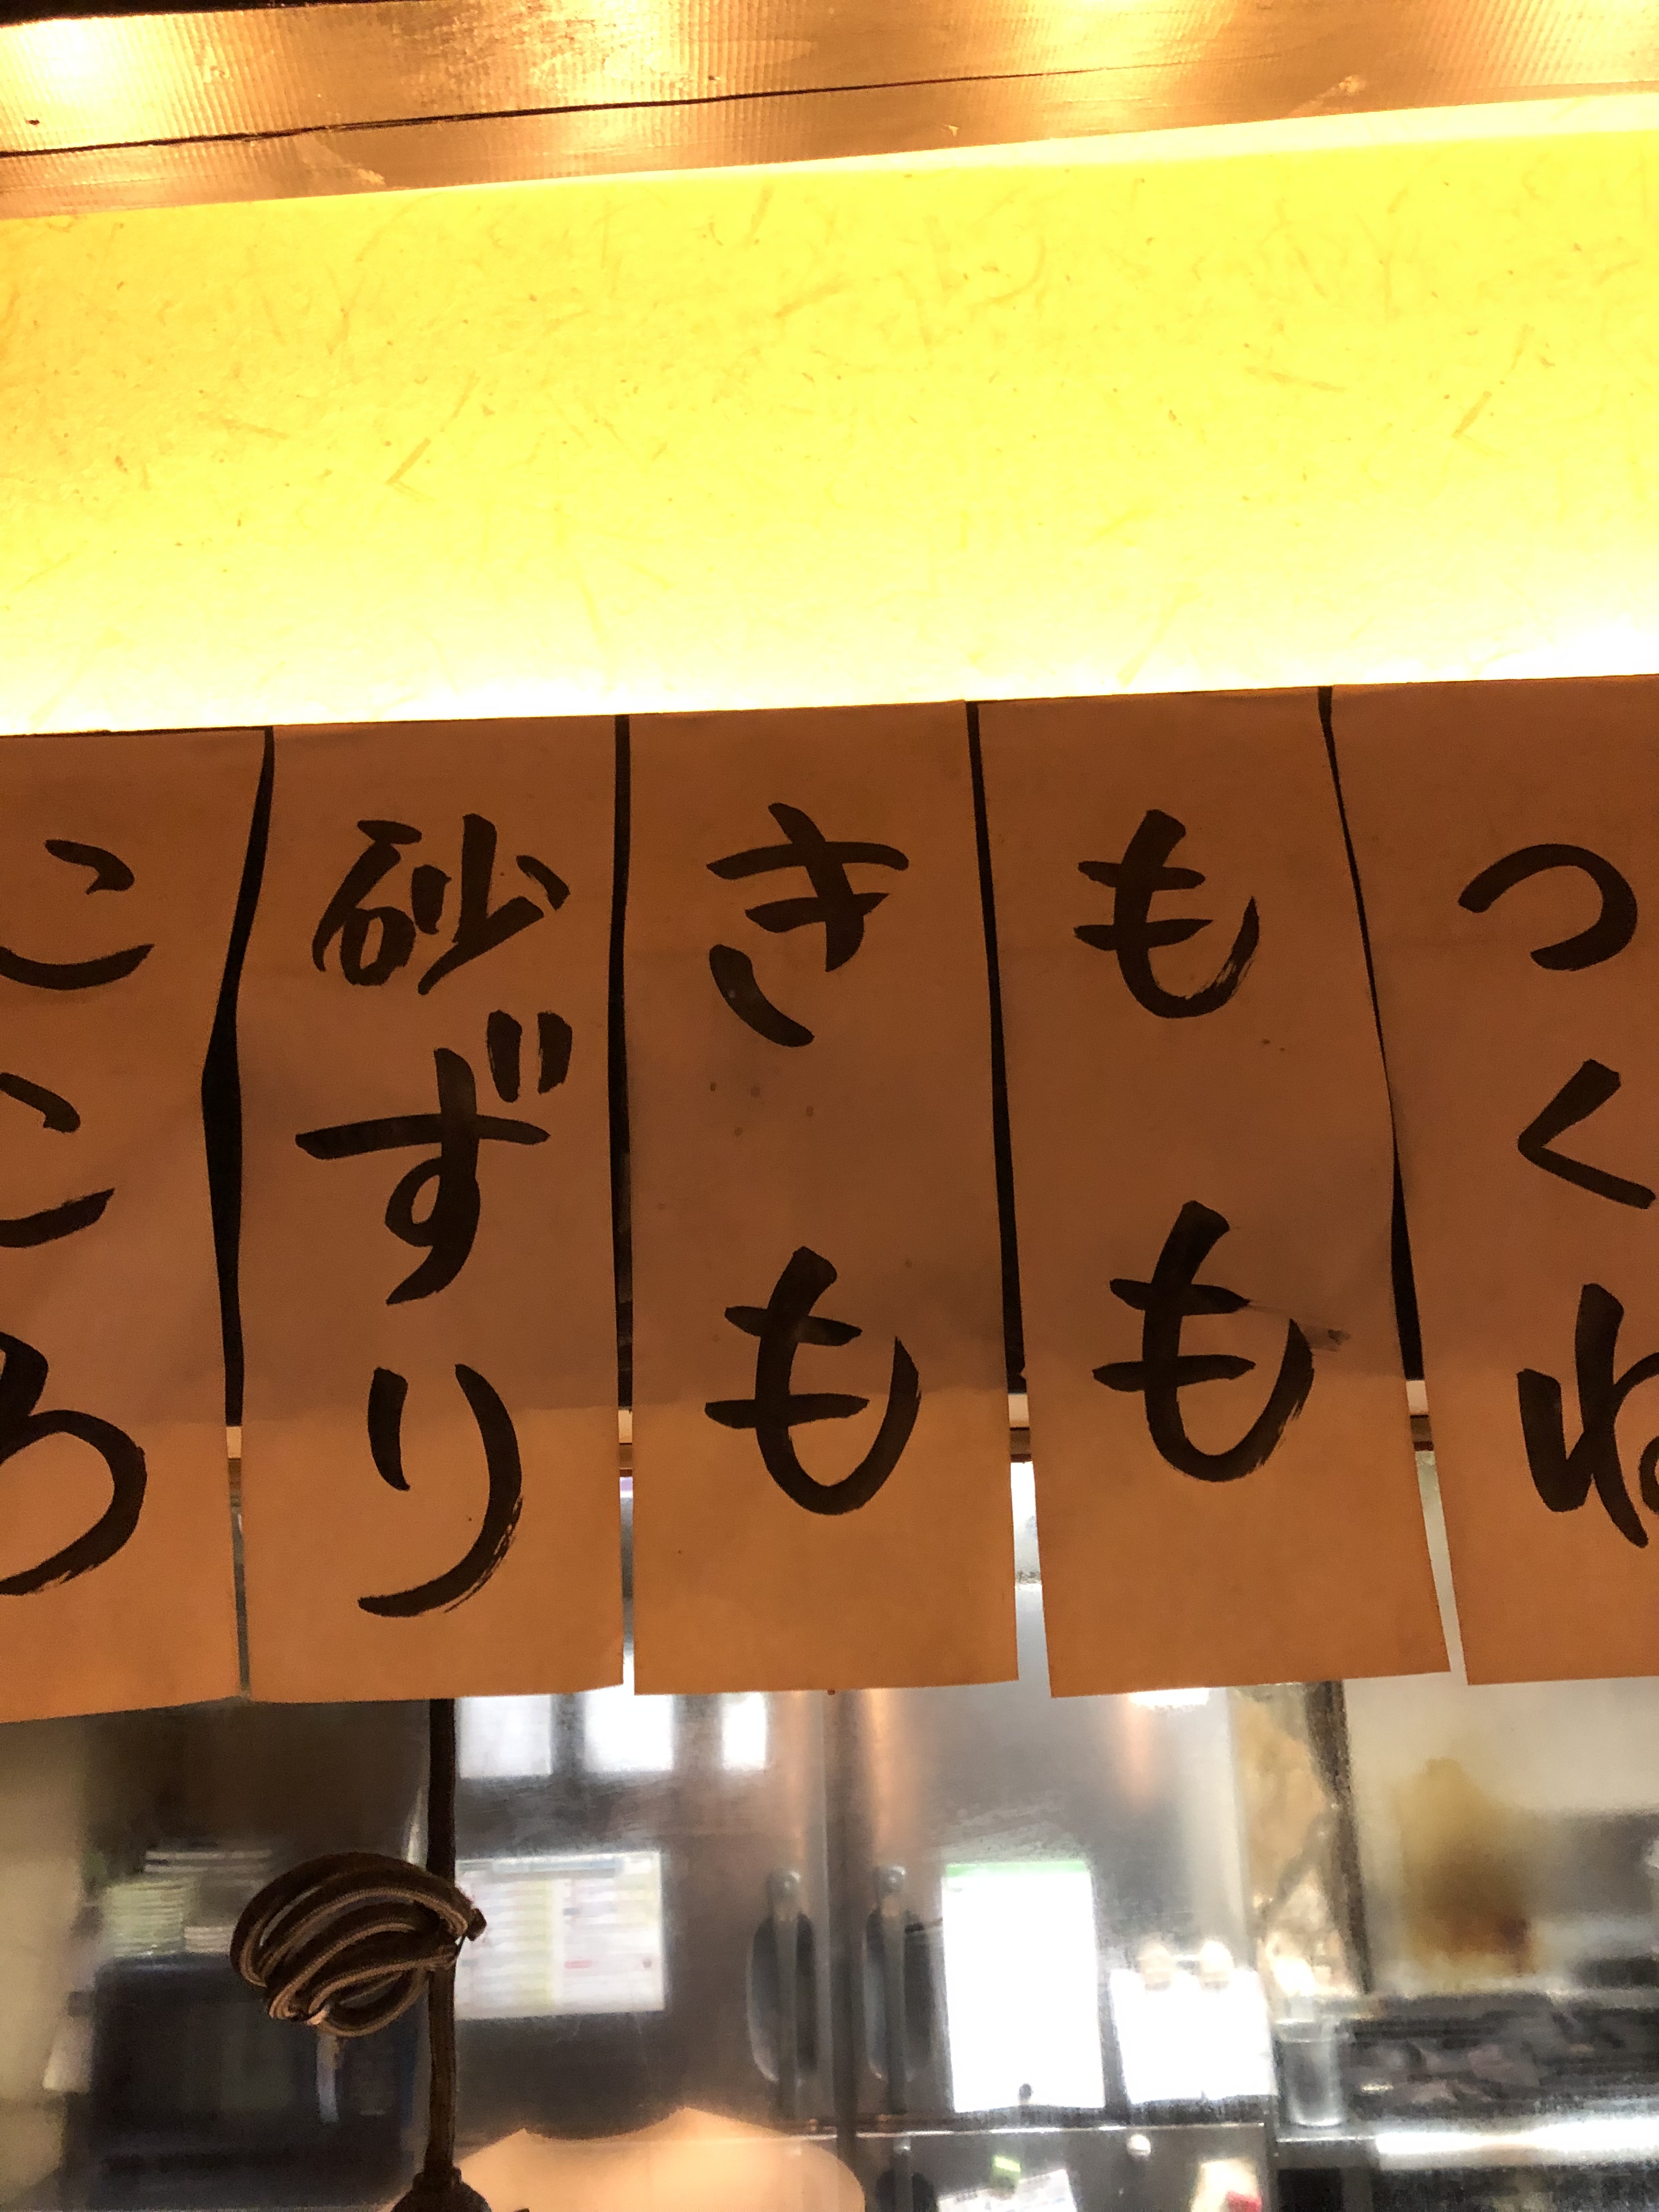 つくね
もも
きも
砂ずり
こころ